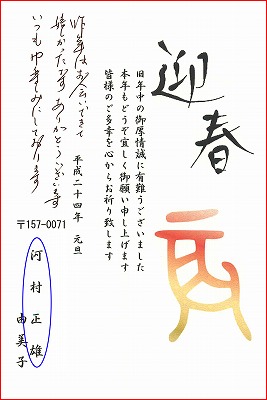 迎春
旧年中の御厚情誠に有難うございました
本年もどうぞ宜しく御願い申し上げます
皆様のご多幸を心からお祈り致します
平成二十四年 元旦
昨年はお会いできて
嬉しかったです ありがとうございます
いつもゆきてみにしております
〒157-0071
河村正雄
由美子